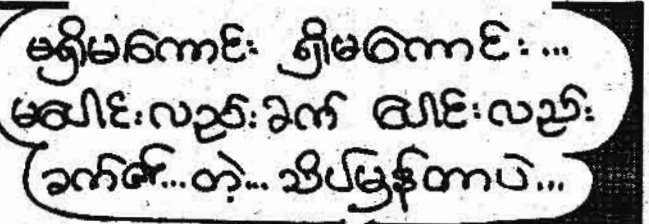 မရှိမကောင်း ရှိမကောင်း...
မပေါင်းလည်းခက် ပေါင်းလည်း
ခက်၏...တဲ့... သိပ်မှန်တာပဲ...